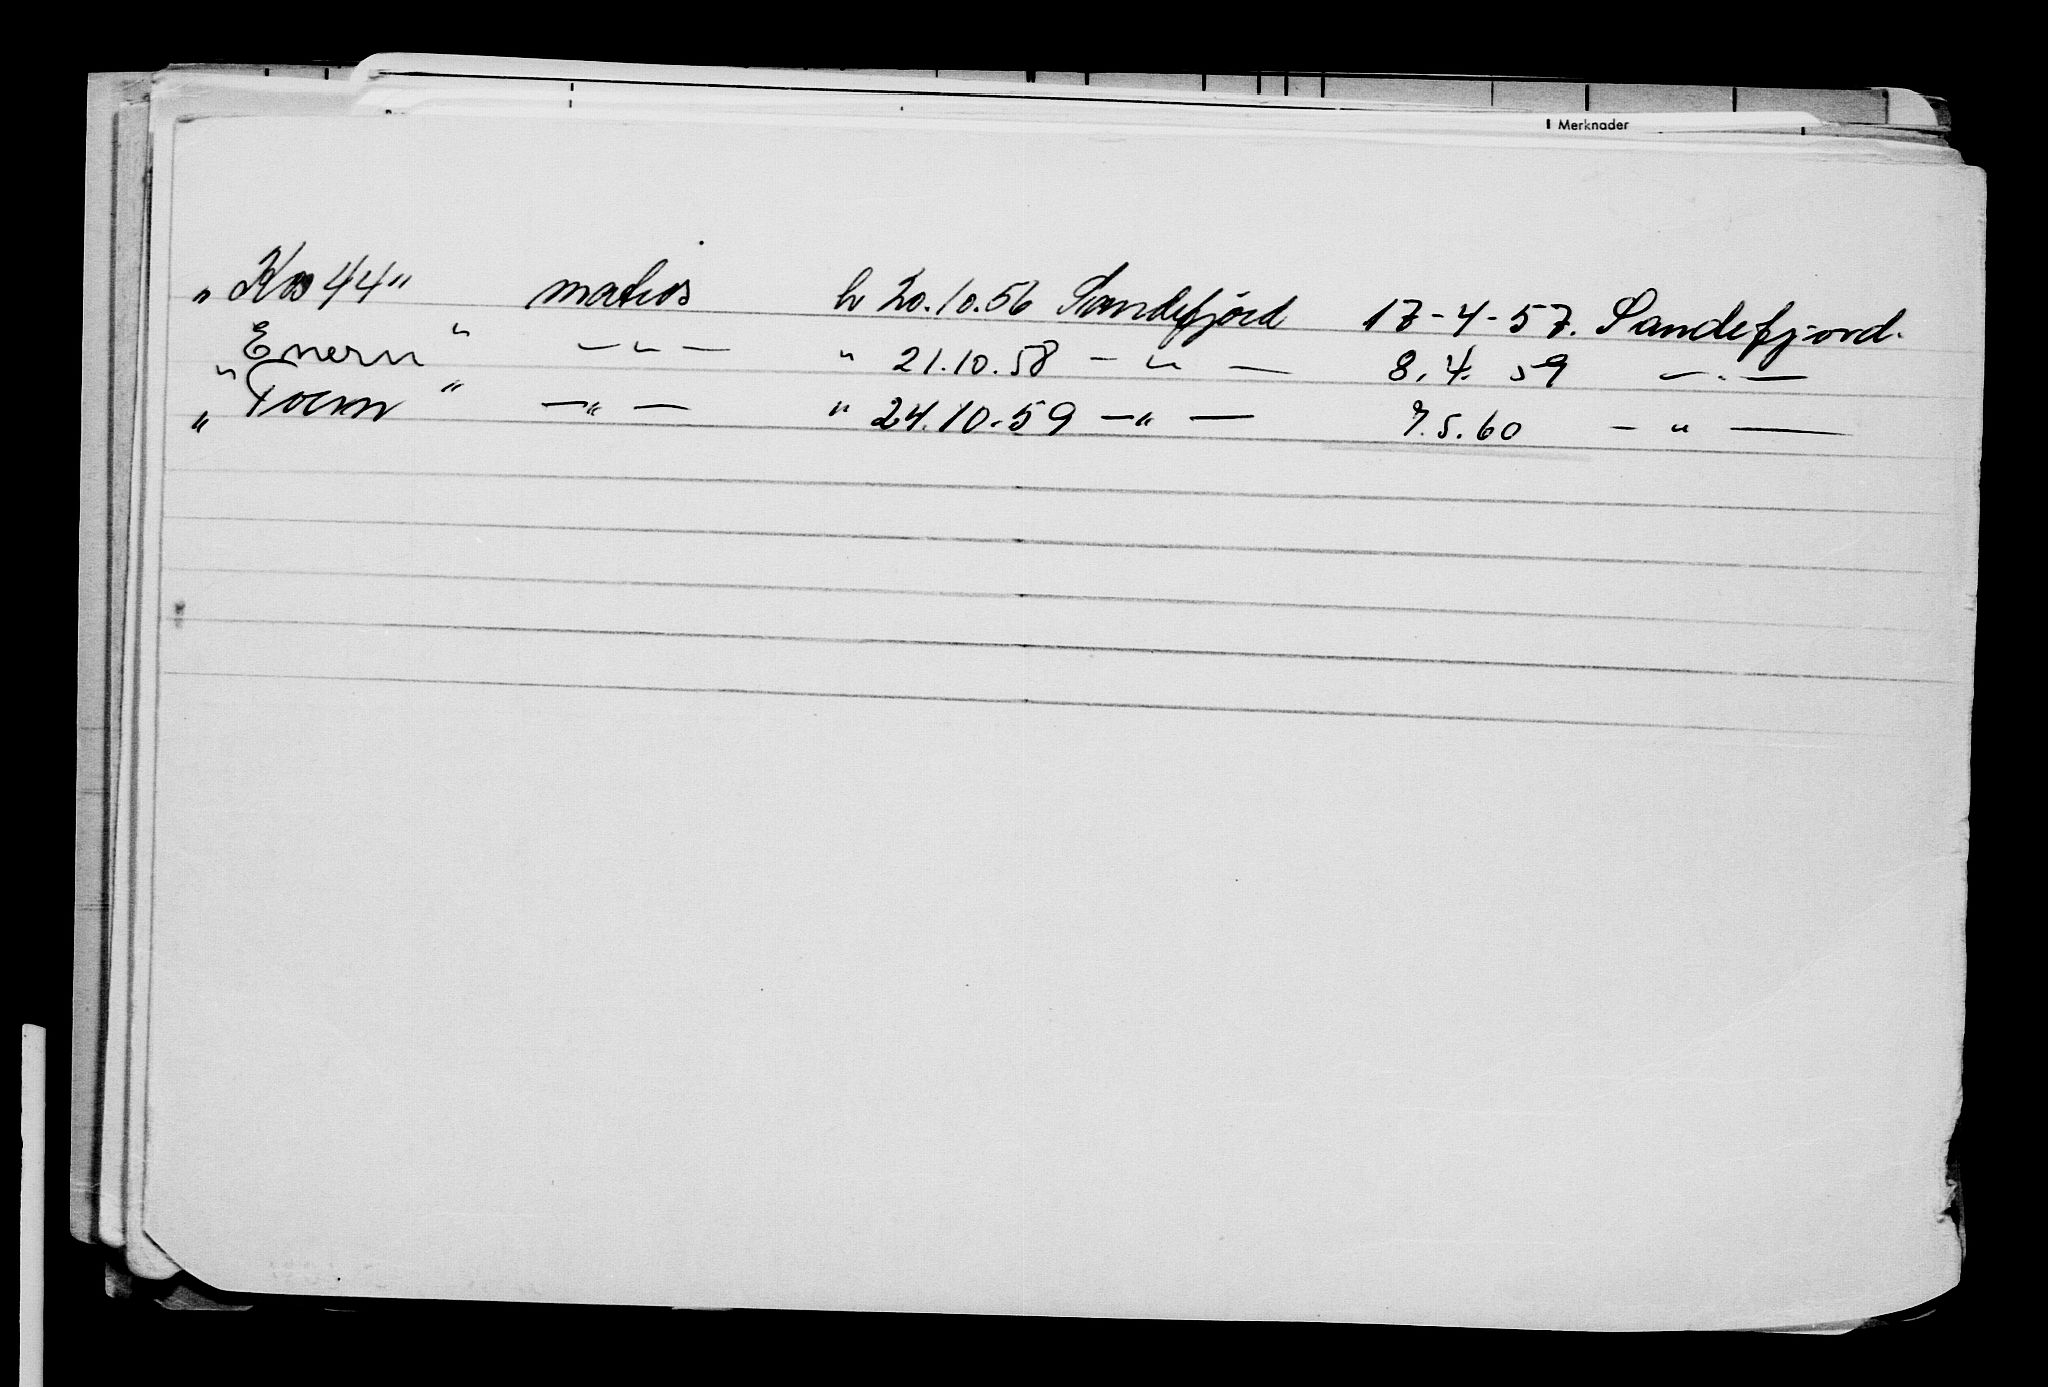 Merknader
„ Kos 44" matros h 20.10.56 Sandefjord 17-4-57. Sandefjord.
„ Enern " — " — " 21.10.58 — " — 8.4.59 — " —
„ Toern " — " — " 24.10.59 — " — 7.5.60 — " —